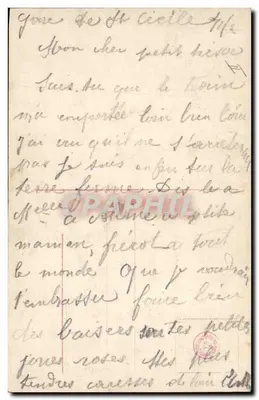 gare de St Cecile
Mon cher petit trésor
Sais-tu que le train
m'a emportée loin bien loin
j'ai cru qu'il ne s'arrêterait
pas je suis enfin sur la
terre ferme. Dis le a
Melle a petite
maman, a tout
le monde Que je voudrais
t'embrasser
des baisers sur tes petites
joues roses. Mes plus
tendres caresses de loin
PAPHIL